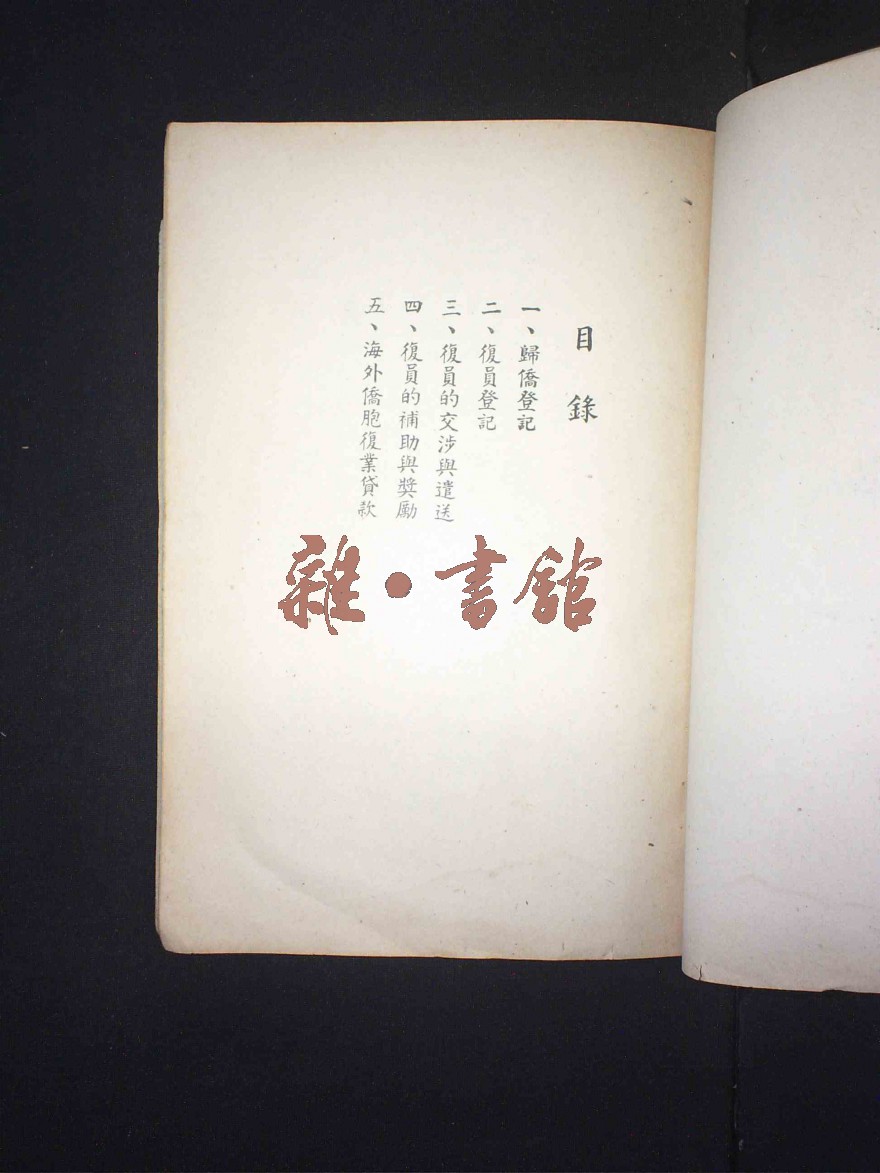 目錄
一、歸僑登記
二、復員登記
三、復員的交涉與遣送
四、復員的補助與獎勵
五、海外僑胞復業貸款
雜·書館